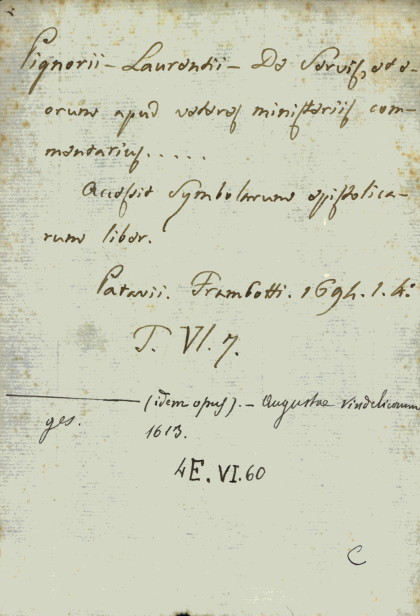 Pignorii - Laurentii - De Servis, et e-
orum apud veteres ministeriis com-
mentarius.....
Accessit Symbolarum epistolica-
rum liber.
Patavii. Frambotti. 1694. 1. 4.º
T. VI. 7.
(idem opus). - Augustae vindelicorum
ges. 1613.
4E.VI.60
C